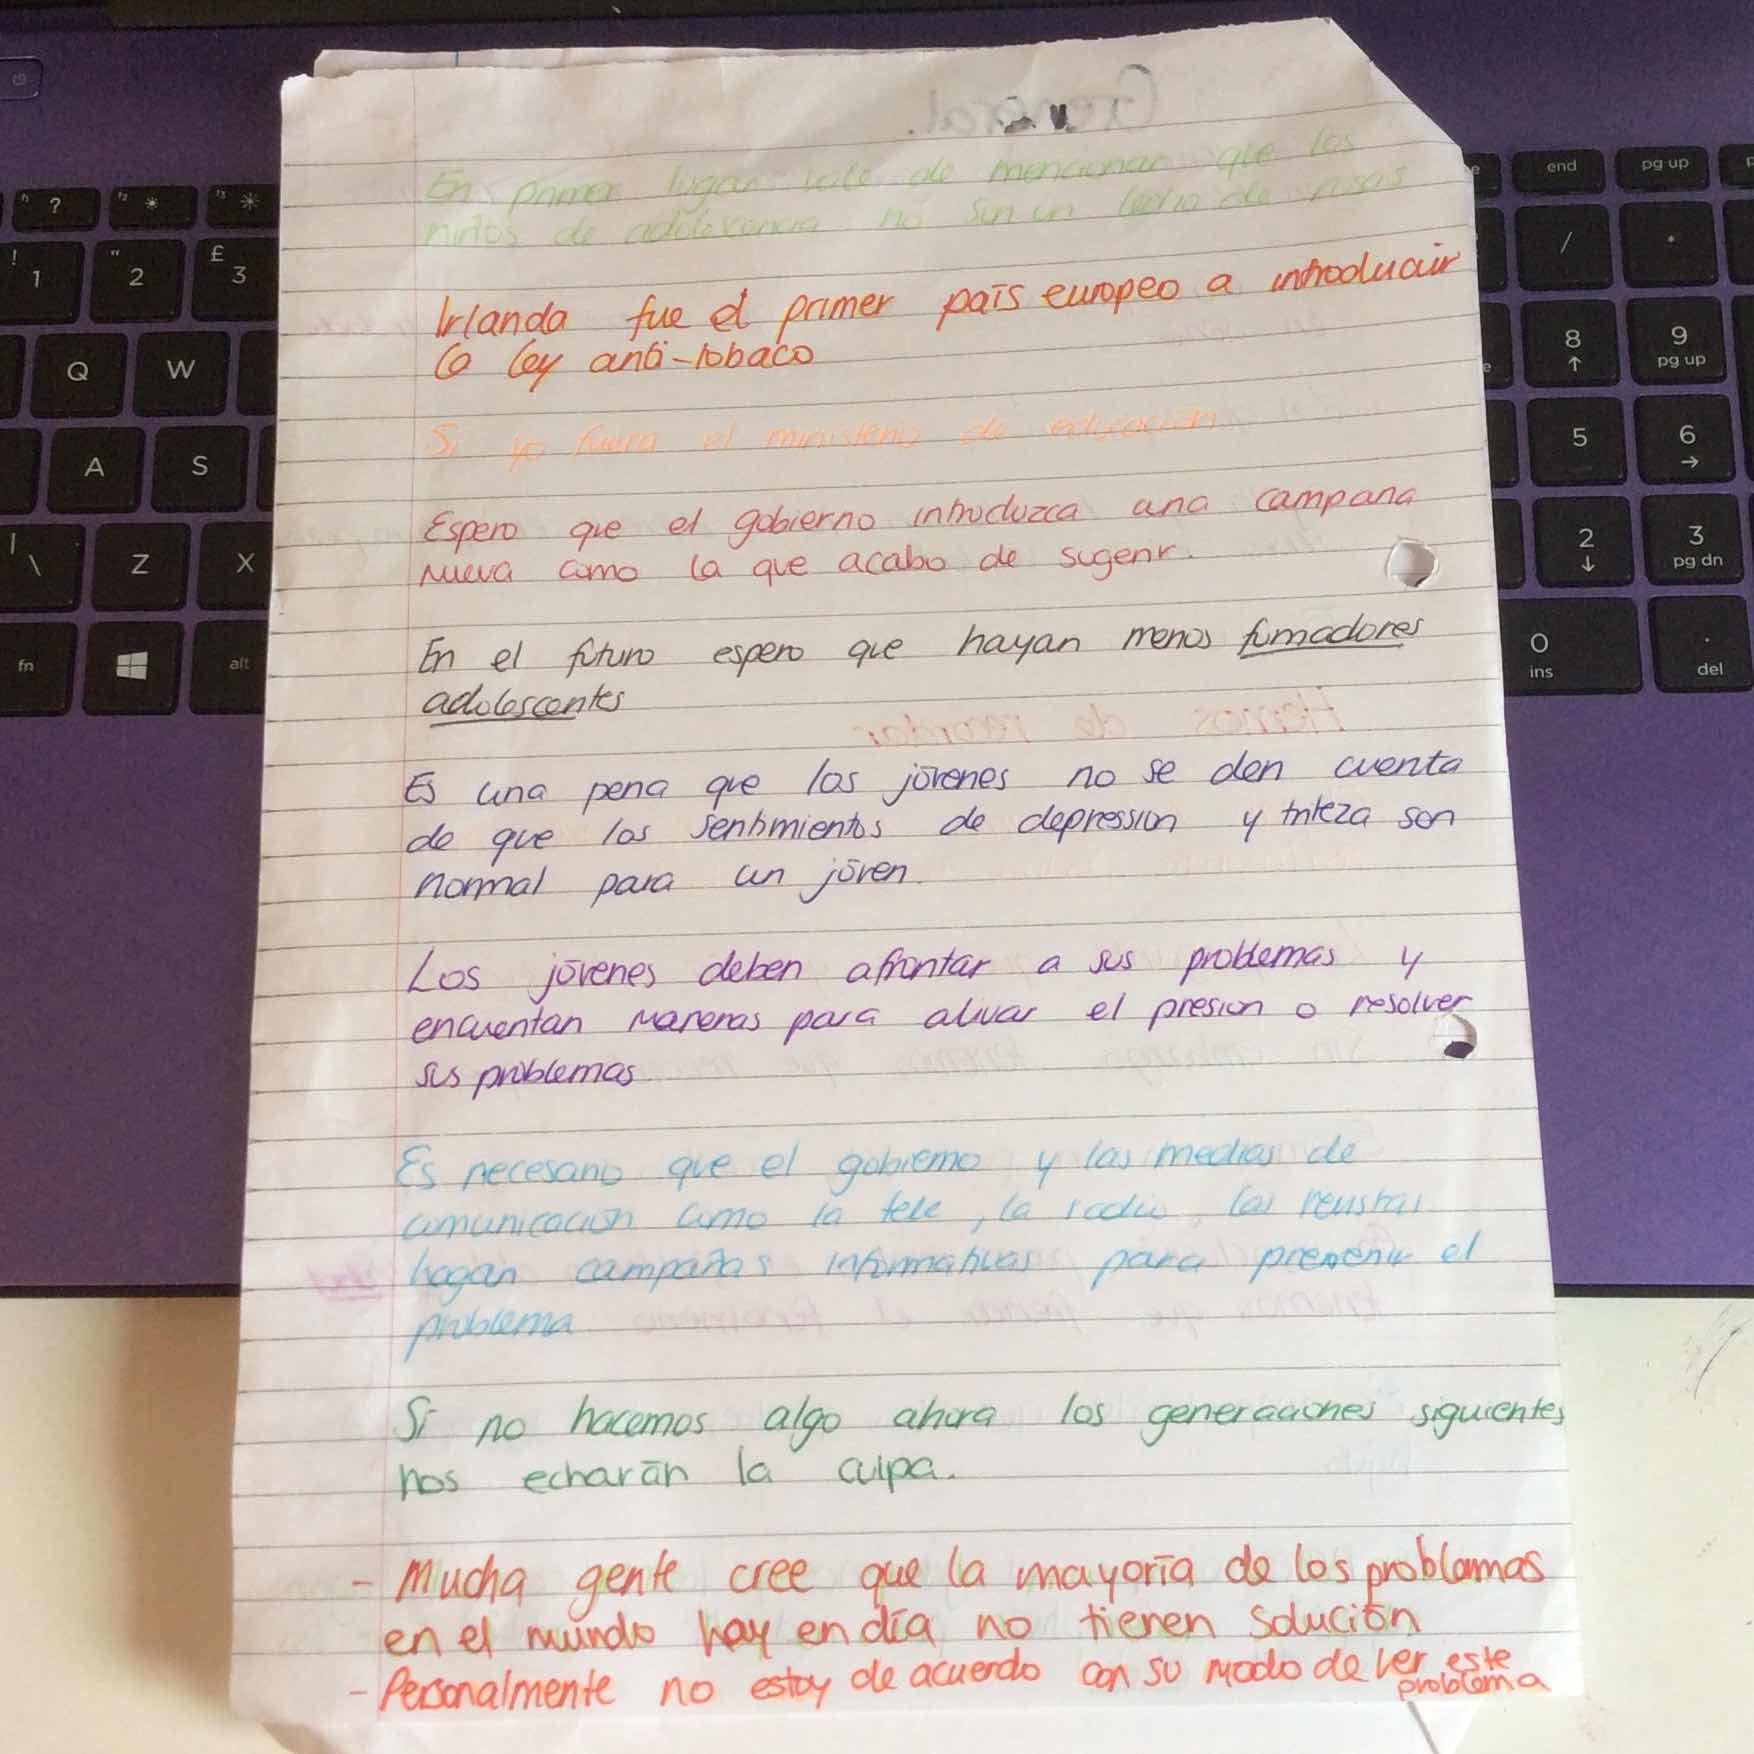 En primer lugar vale de mencionar que los
niños de adolescencia no son un lecho de rosas
Irlanda fue el primer país europeo a introducuir
la ley anti-tobaco
Si yo fuera el ministerio de educación
Espero que el gobierno introduzca una campana
nueva como la que acabo de sugerir.
En el futuro espero que hayan menos fumadores
adolescentes
Es una pena que los jóvenes no se den cuenta
de que los sentimientos de depression y triteza son
normal para un jóven.
Los jóvenes deben afrontar a sus problemas y
encuentan maneras para alivar el presion o resolver
sus problemas.
Es necesario que el gobierno y las medias de
comunicación como la tele, la radio, las revistas
hagan campañas informativas para prevenir el
problema
Si no hacemos algo ahora los generaciones siguientes
nos echarán la culpa.
- Mucha gente cree que la mayoría de los problemas
en el mundo hoy en día no tienen solución
- Personalmente no estoy de acuerdo con su modo de ver este
problema
? * 
! 1 " 2 £ 3
Q W
A S
\ Z X
fn alt
end pg up
/ *
8 9 pg up
5 6
2 3 pg dn
0 ins . del